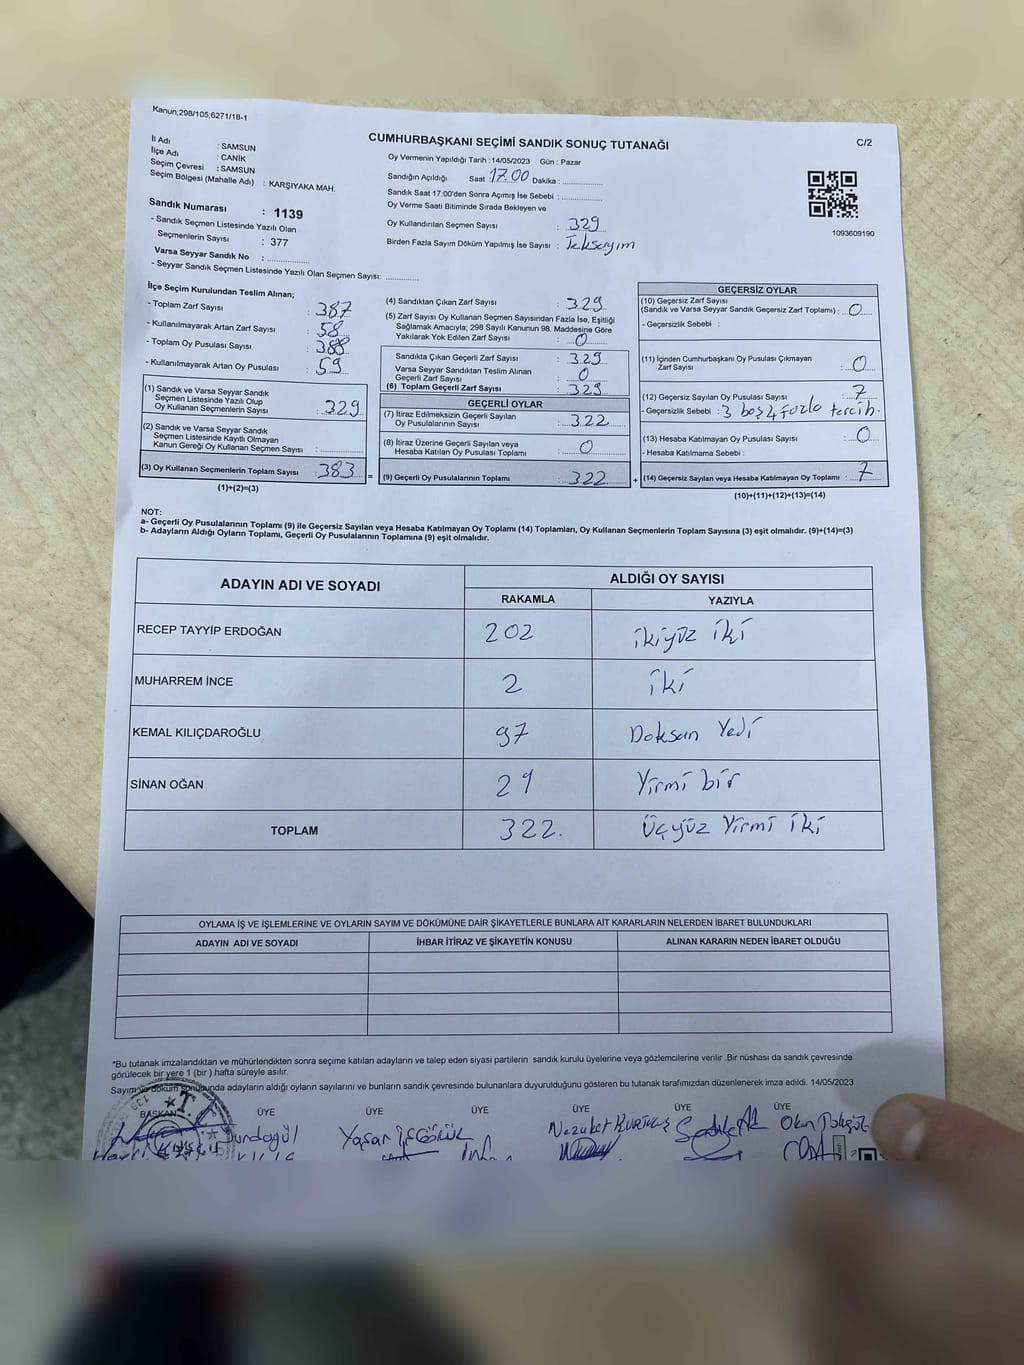 Kanun;298/105;6271/18-1
CUMHURBAŞKANI SEÇİMİ SANDIK SONUÇ TUTANAĞI
C/2
İl Adı : SAMSUN
İlçe Adı : CANİK
Seçim Çevresi : SAMSUN
Seçim Bölgesi (Mahalle Adı) : KARŞIYAKA MAH.
Sandık Numarası : 1139
- Sandık Seçmen Listesinde Yazılı Olan
Seçmenlerin Sayısı : 377
Varsa Seyyar Sandık No : ..............
- Seyyar Sandık Seçmen Listesinde Yazılı Olan Seçmen Sayısı: ............
Oy Vermenin Yapıldığı Tarih : 14/05/2023 Gün : Pazar
Sandığın Açıldığı Saat 17.00 Dakika : ..............
Sandık Saat 17:00'den Sonra Açımış İse Sebebi : ..............
Oy Verme Saati Bitiminde Sırada Bekleyen ve
Oy Kullandırılan Seçmen Sayısı : 329
Birden Fazla Sayım Döküm Yapılmış İse Sayısı : Teksayım
1093609190
İlçe Seçim Kurulundan Teslim Alınan;
- Toplam Zarf Sayısı : 387
- Kullanılmayarak Artan Zarf Sayısı : 58
- Toplam Oy Pusulası Sayısı : 388
- Kullanılmayarak Artan Oy Pusulası : 59
(1) Sandık ve Varsa Seyyar Sandık
Seçmen Listesinde Yazılı Olup
Oy Kullanan Seçmenlerin Sayısı : 329
(2) Sandık ve Varsa Seyyar Sandık
Seçmen Listesinde Kayıtlı Olmayan
Kanun Gereği Oy Kullanan Seçmen Sayısı : ..............
(3) Oy Kullanan Seçmenlerin Toplam Sayısı : 383 =
(1)+(2)=(3)
(4) Sandıktan Çıkan Zarf Sayısı : 329
(5) Zarf Sayısı Oy Kullanan Seçmen Sayısından Fazla İse, Eşitliği
Sağlamak Amacıyla; 298 Sayılı Kanunun 98. Maddesine Göre
Yakılarak Yok Edilen Zarf Sayısı : 0
Sandıkta Çıkan Geçerli Zarf Sayısı : 329
Varsa Seyyar Sandıktan Teslim Alınan
Geçerli Zarf Sayısı : 0
(6) Toplam Geçerli Zarf Sayısı : 329
GEÇERLİ OYLAR
(7) İtiraz Edilmeksizin Geçerli Sayılan
Oy Pusulalarının Sayısı : 322
(8) İtiraz Üzerine Geçerli Sayılan veya
Hesaba Katılan Oy Pusulası Toplamı : 0
(9) Geçerli Oy Pusulalarının Toplamı : 322 +
GEÇERSİZ OYLAR
(10) Geçersiz Zarf Sayısı
(Sandık ve Varsa Seyyar Sandık Geçersiz Zarf Toplamı) : 0
- Geçersizlik Sebebi :
(11) İçinden Cumhurbaşkanı Oy Pusulası Çıkmayan
Zarf Sayısı : 0
(12) Geçersiz Sayılan Oy Pusulası Sayısı : 7
- Geçersizlik Sebebi : 3 boş 4 fazla tercih.
(13) Hesaba Katılmayan Oy Pusulası Sayısı : 0
- Hesaba Katılmama Sebebi :
(14) Geçersiz Sayılan veya Hesaba Katılmayan Oy Toplamı : 7
(10)+(11)+(12)+(13)=(14)
NOT:
a- Geçerli Oy Pusulalarının Toplamı (9) ile Geçersiz Sayılan veya Hesaba Katılmayan Oy Toplamı (14) Toplamları, Oy Kullanan Seçmenlerin Toplam Sayısına (3) eşit olmalıdır. (9)+(14)=(3)
b- Adayların Aldığı Oyların Toplamı, Geçerli Oy Pusulalarının Toplamına (9) eşit olmalıdır.
ADAYIN ADI VE SOYADI
ALDIĞI OY SAYISI
RAKAMLA YAZIYLA
RECEP TAYYİP ERDOĞAN 202 ikiyüz iki
MUHARREM İNCE 2 iki
KEMAL KILIÇDAROĞLU 97 Doksan Yedi
SİNAN OĞAN 21 Yirmi bir
TOPLAM 322. Üçyüz Yirmi iki
OYLAMA İŞ VE İŞLEMLERİNE VE OYLARIN SAYIM VE DÖKÜMÜNE DAİR ŞİKAYETLERLE BUNLARA AİT KARARLARIN NELERDEN İBARET BULUNDUKLARI
ADAYIN ADI VE SOYADI İHBAR İTİRAZ VE ŞİKAYETİN KONUSU ALINAN KARARIN NEDEN İBARET OLDUĞU
*Bu tutanak imzalandıktan ve mühürlendikten sonra seçime katılan adayların ve talep eden siyasi partilerin sandık kurulu üyelerine veya gözlemcilerine verilir .Bir nüshası da sandık çevresinde
görülecek bir yere 1 (bir ) hafta süreyle asılır.
Sayım ve döküm sonucunda adayların aldığı oyların sayılarını ve bunların sandık çevresinde bulunanlara duyurulduğunu gösteren bu tutanak tarafımızdan düzenlenerek imza edildi. 14/05/2023
BAŞKAN ÜYE ÜYE ÜYE ÜYE ÜYE ÜYE
Yaşar Nezaket Okan